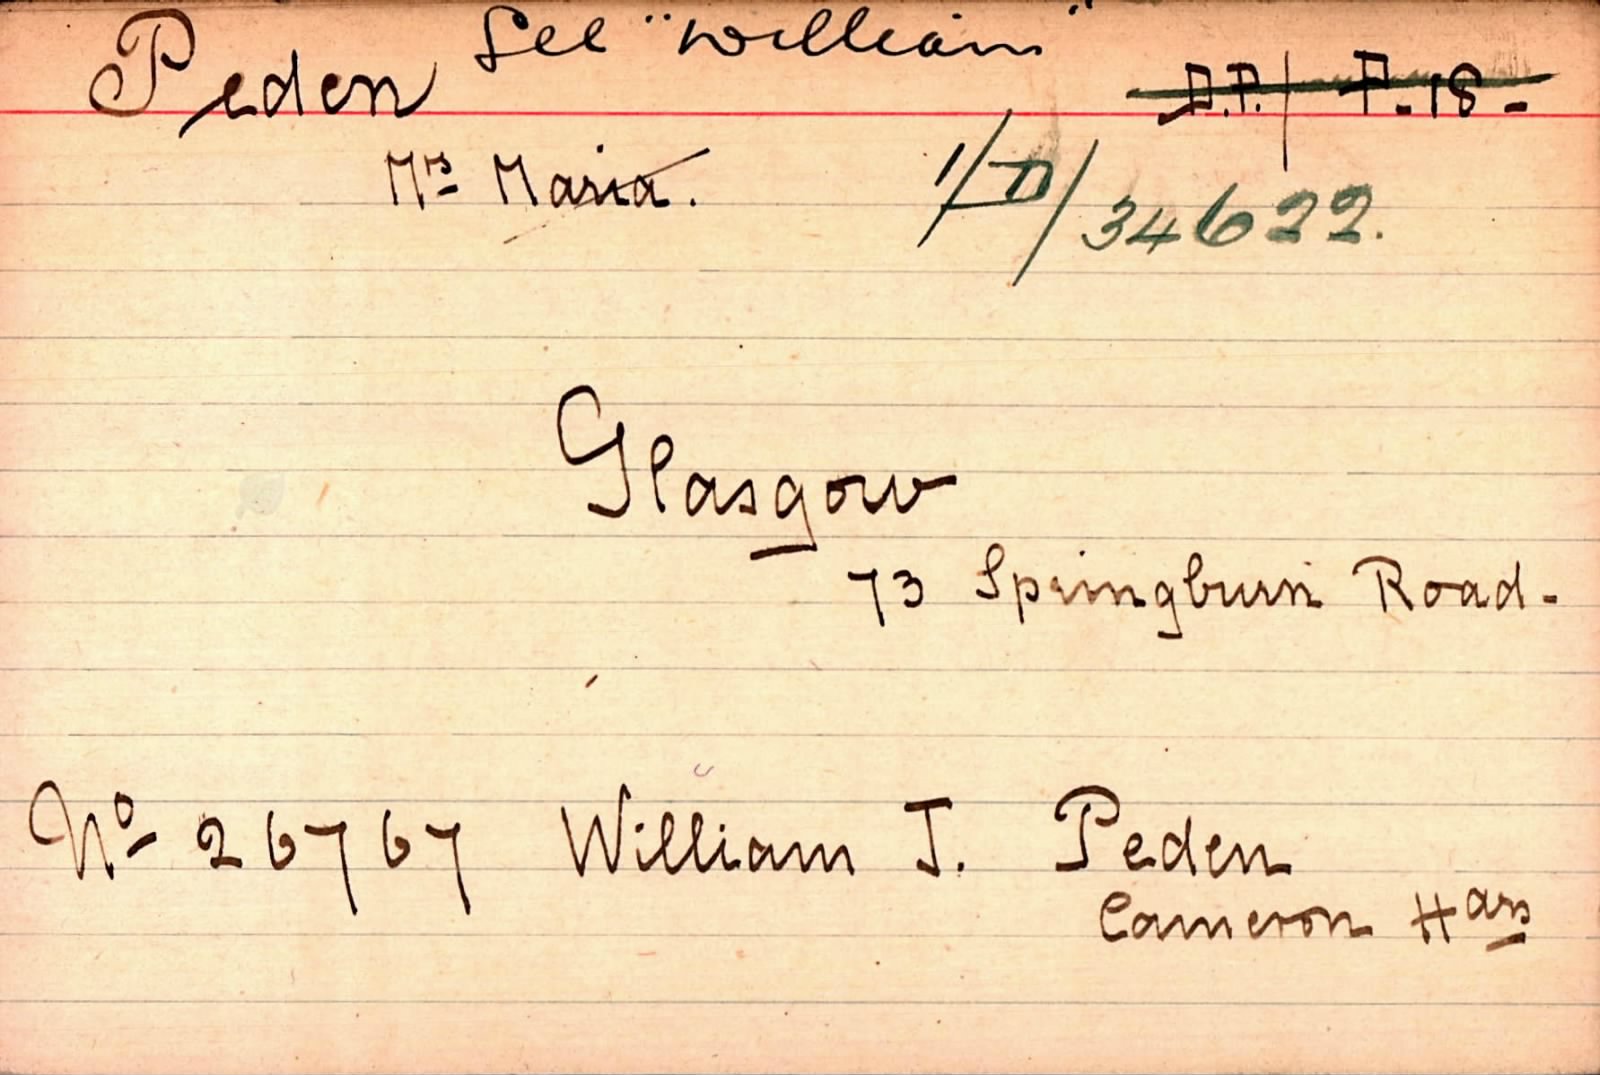 Peden See "William"
D.P. / P. 18 -
Mrs Maria.
1/D/34622.
Glasgow
73 Springburn Road -
No 26767 William J. Peden
Cameron Hars